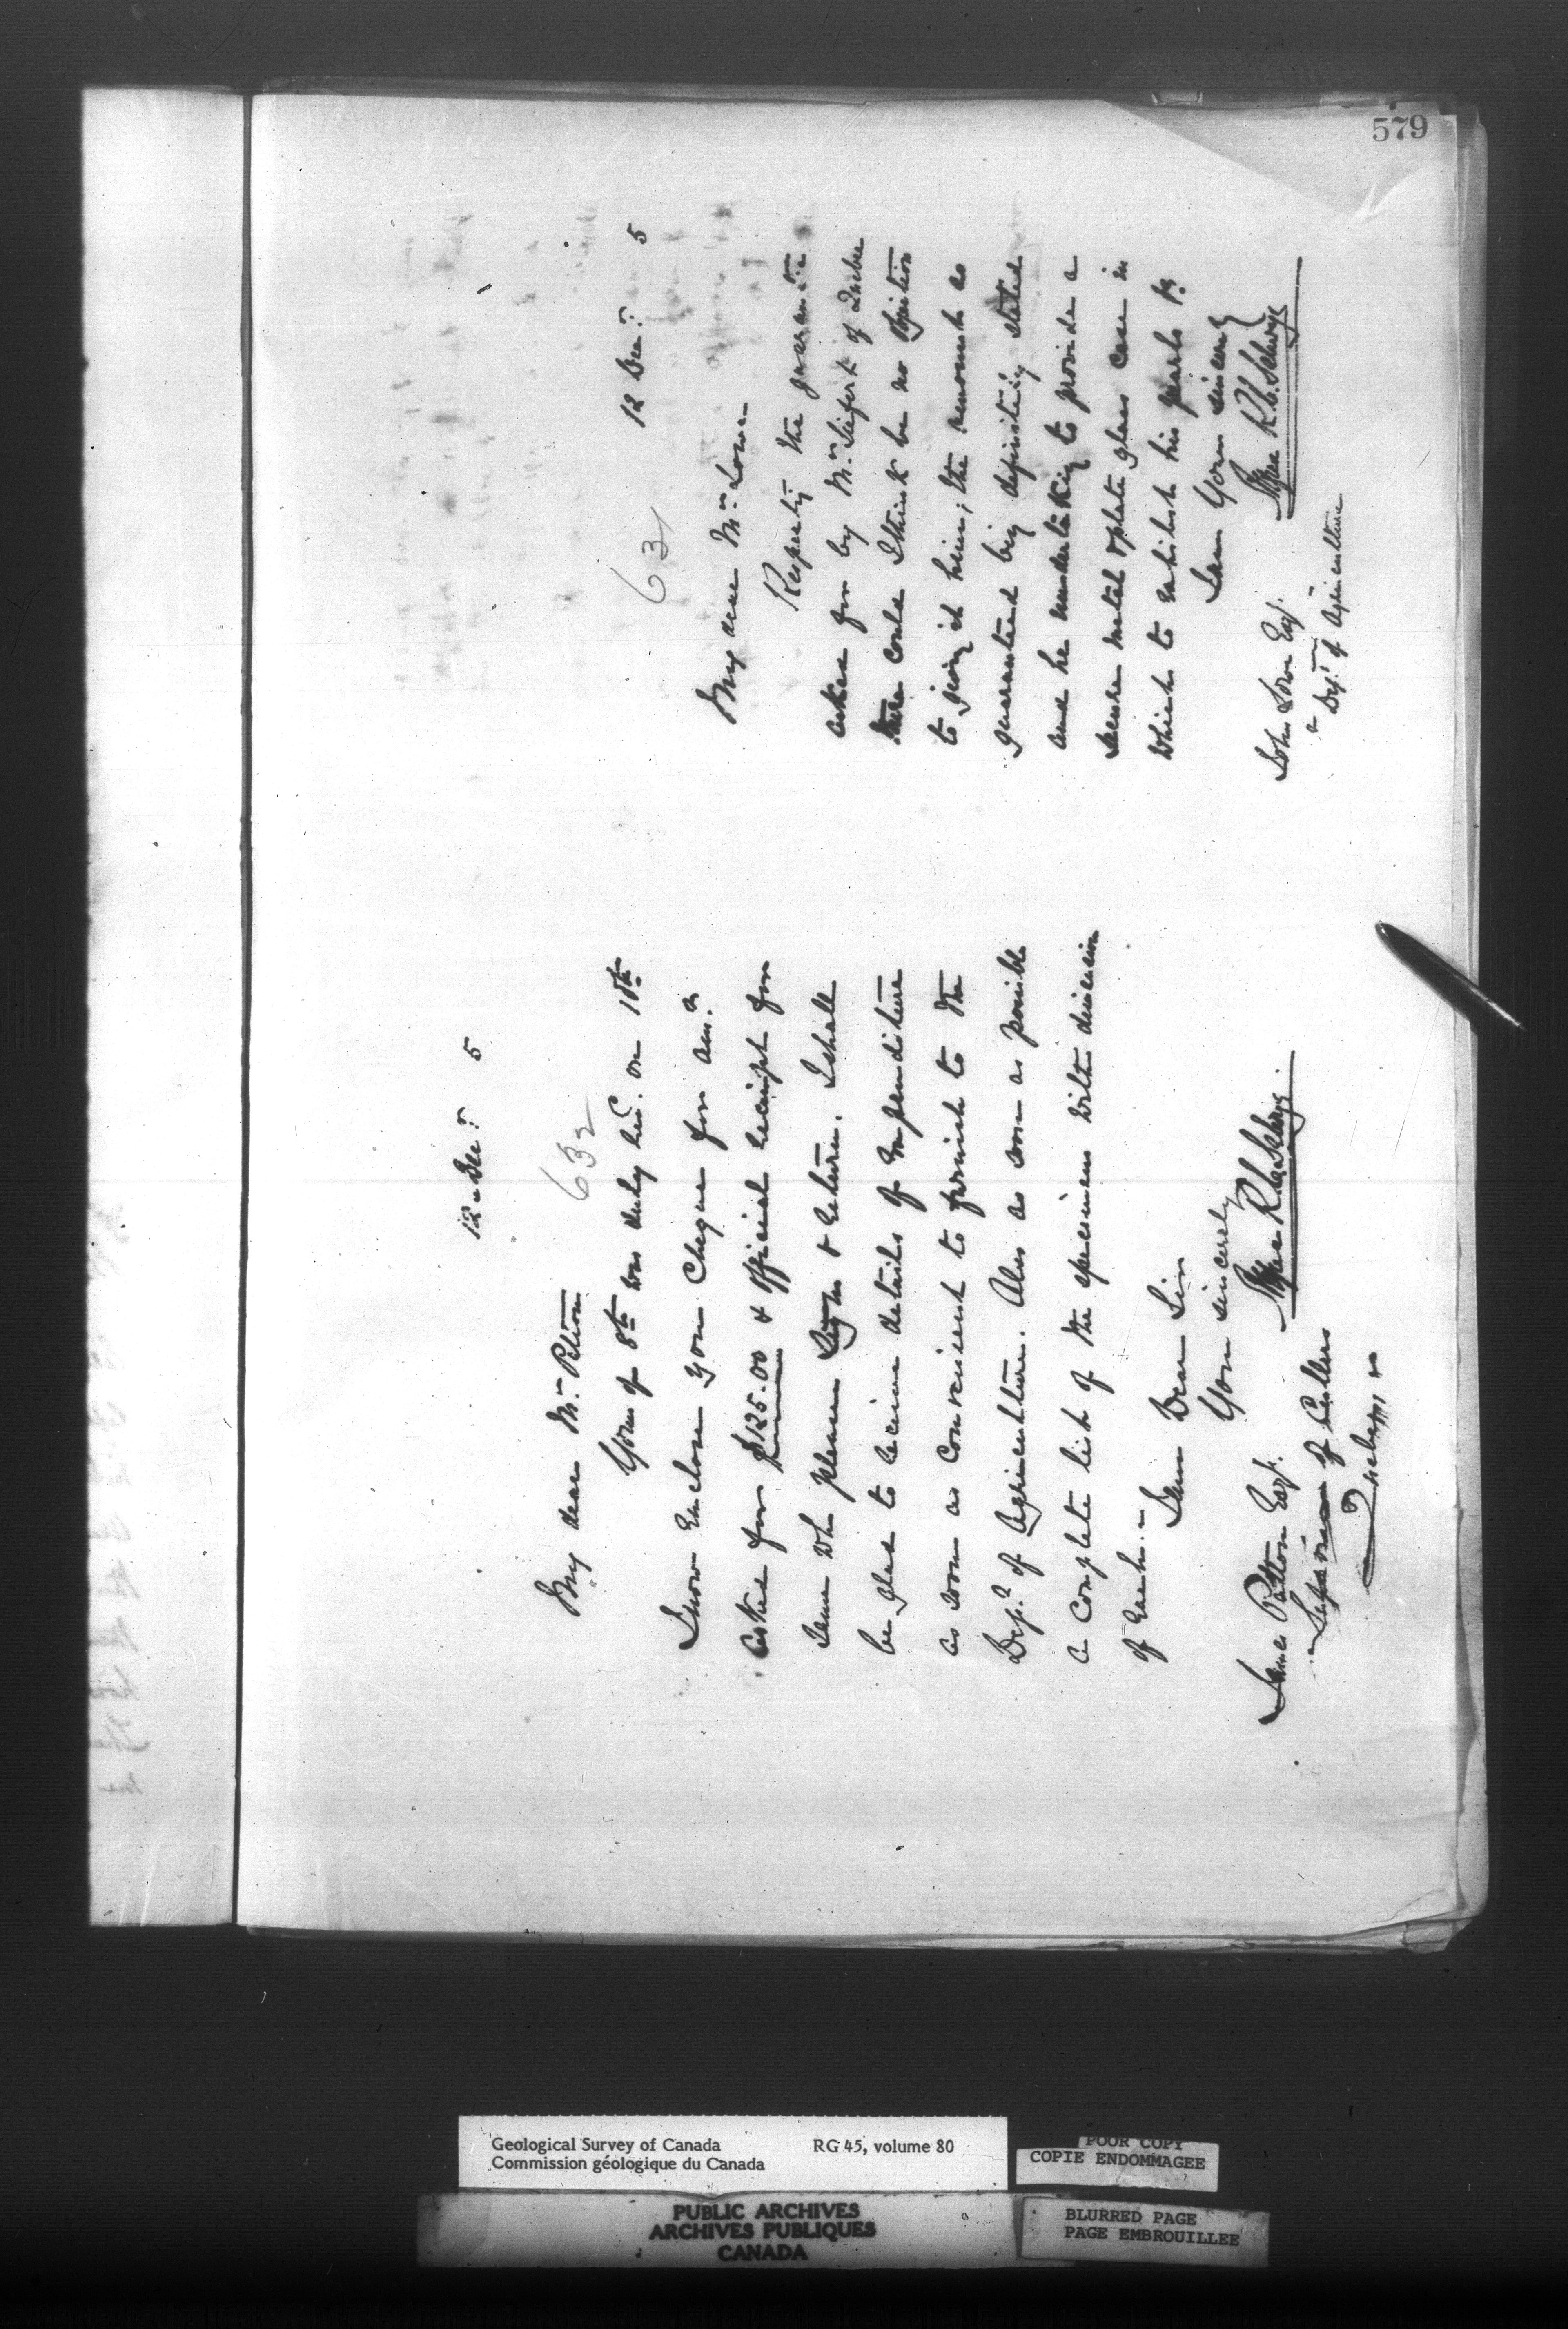 579
12 Dec.r 5
632
My dear Mr. Patton
Yours of 8th was duly rec. on 10th
I now enclose your Cheque for am.t
asked for $125.00 & official receipt for
same wh please sign & return. I shall
be glad to receive details of expenditure
as soon as convenient to furnish to the
Dep.t of Agriculture. Also as soon as possible
a complete list of the specimens with dimension
of each.
I am Dear Sir
Yours sincerely
Alfred R. C. Selwyn
James Patton Esq.
of Cullers
Quebec
12 Dec.r 5
631
My dear Mr. Lowe
Respecting the guarantee
asked for by Mr. Seifert of Quebec
there could I think be no objection
to giving it him; the amount so
guaranteed being definitely stated
and he undertaking to provide a
secure metal & plate glass case in
which to exhibit his pearls &c
I am Yours sincerely
Alfred R. C. Selwyn
John Lowe Esq.
Dep.t of Agriculture
Geological Survey of Canada RG 45, volume 80
Commission géologique du Canada
POOR COPY
COPIE ENDOMMAGEE
PUBLIC ARCHIVES
ARCHIVES PUBLIQUES
CANADA
BLURRED PAGE
PAGE EMBROUILLEE